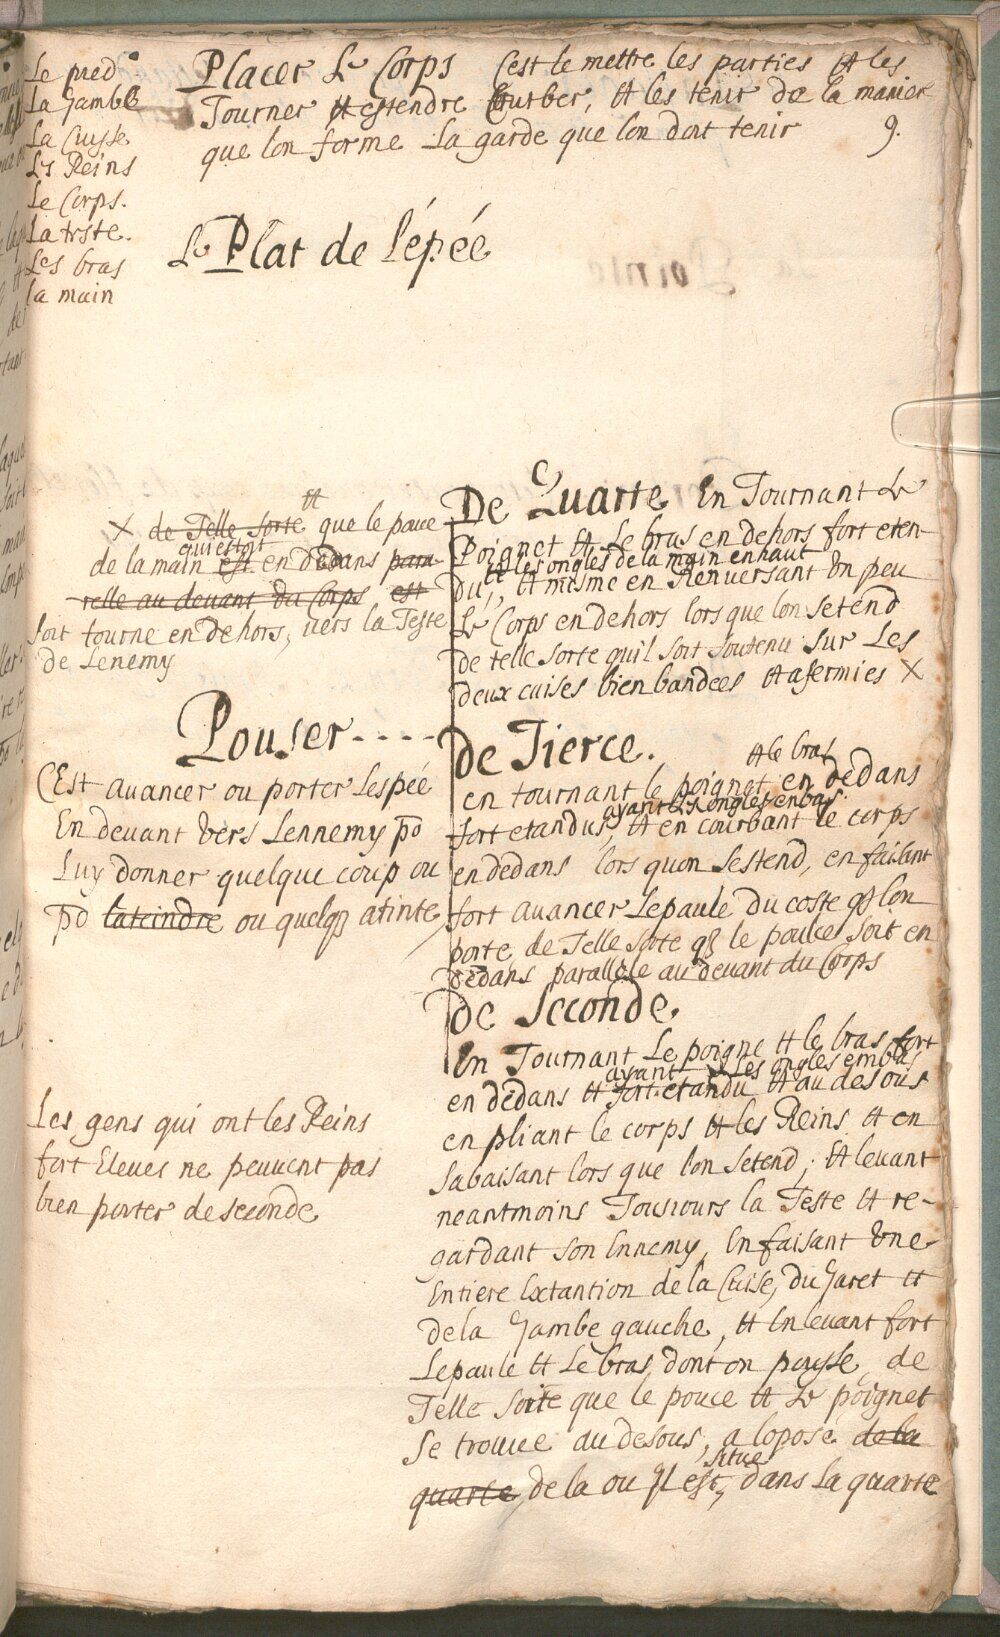 Le pied
La Jambe
La Cuysse
Les Reins
Le Corps.
La teste.
Les bras
la main
Placer Le Corps Cest le mettre les parties et les
Tourner et estendre Courber, et les tenir de la manier
que lon forme La garde que lon doit tenir
9.
Le Plat de l'épée
X de Telle sorte et que le pouce
de la main est qui estoit en dedans para-
relle au devant du Corps est
soit tourne en dehors, vers la Teste
de Lenemy
Pousser----
C'Est avancer ou porter Lespée
En devant Vers Lennemy po
Luy donner quelque coup ou
po lateindre ou quelq atinte
Les gens qui ont les Reins
fort Eleves ne peuvent pas
bien porter de seconde
De Quarte En Tournant Le
Poignet et Le bras en dehors fort eten-
et les ongles de la main en haut
du, et misme en Renversant Un peu
Le Corps en dehors lors que lon setend
de telle sorte qu'il soit soutenu sur Les
deux cuises bien bandees et afermies X
De Tierce.
et le bras
en tournant le poignet en dedans
ayant Les ongles en bas.
fort etandus, et en courbant le corps
en dedans lors quon Sestend, en faisant
fort avancer Lepaule du coste q lon
porte, de Telle sorte q le poulce soit en
dedans parallele au devant du Corps
De Seconde.
En Tournant Le poigne et le bras fort
ayant Les ongles embas
en dedans et fort etandu et au desous
en pliant le corps et les Reins et en
sabaisant lors que lon setend, et levant
neantmoins Tousiours la Teste et re-
gardant son Ennemy, En faisant Une
Entiere Extantion de la Cuise, du Jaret et
de la Jambe gauche, et En levant fort
Lepaule et Le bras dont on pousse, de
Telle sorte que le pouce et Le poignet
se trouve au desous, a lopose de la
situe
quarte, de la ou Il est, dans La quarte